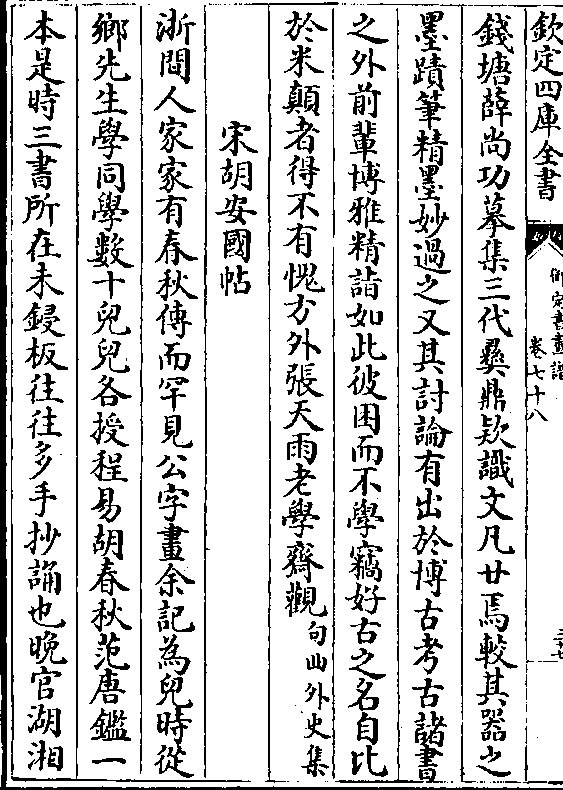 欽定四庫全書
御定書畫譜
卷七十八
錢塘薛尚功摹集三代彝鼎欵識文凡廿焉較其器之
墨蹟筆精墨妙過之又其討論有出於博古考古諸書
之外前輩博雅精詣如此彼困而不學竊好古之名自比
於米顛者得不有愧方外張天雨老學齋觀句曲外史集
宋胡安國帖
浙閩人家家有春秋傳而罕見公字畫余記為兒時從
鄉先生學同學數十兒兒各授程易胡春秋范唐鑑一
本是時三書所在未鋟板往往多手抄誦也晚官湖湘